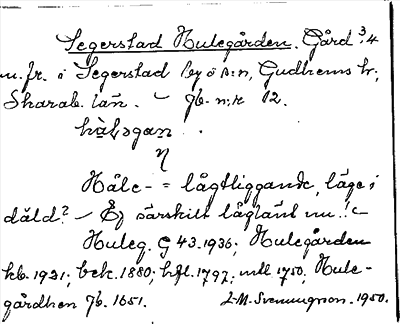 Segerstad Hulegården. Gård 3/4
m. fr. i Segerstad by o s:n, Gudhems hr,
Skarab. län. – jb. n:r 12.
hàləgan
η
Håle- = lågtliggande, läge i
däld? – Ej särskilt låglänt nu!
Huleg. G 43.1936; Hulegården
kb. 1921; bek. 1880; hfl. 1797; mtl 1750, Hule-
gårdhen jb. 1651. I-M. Svenningson. 1950.